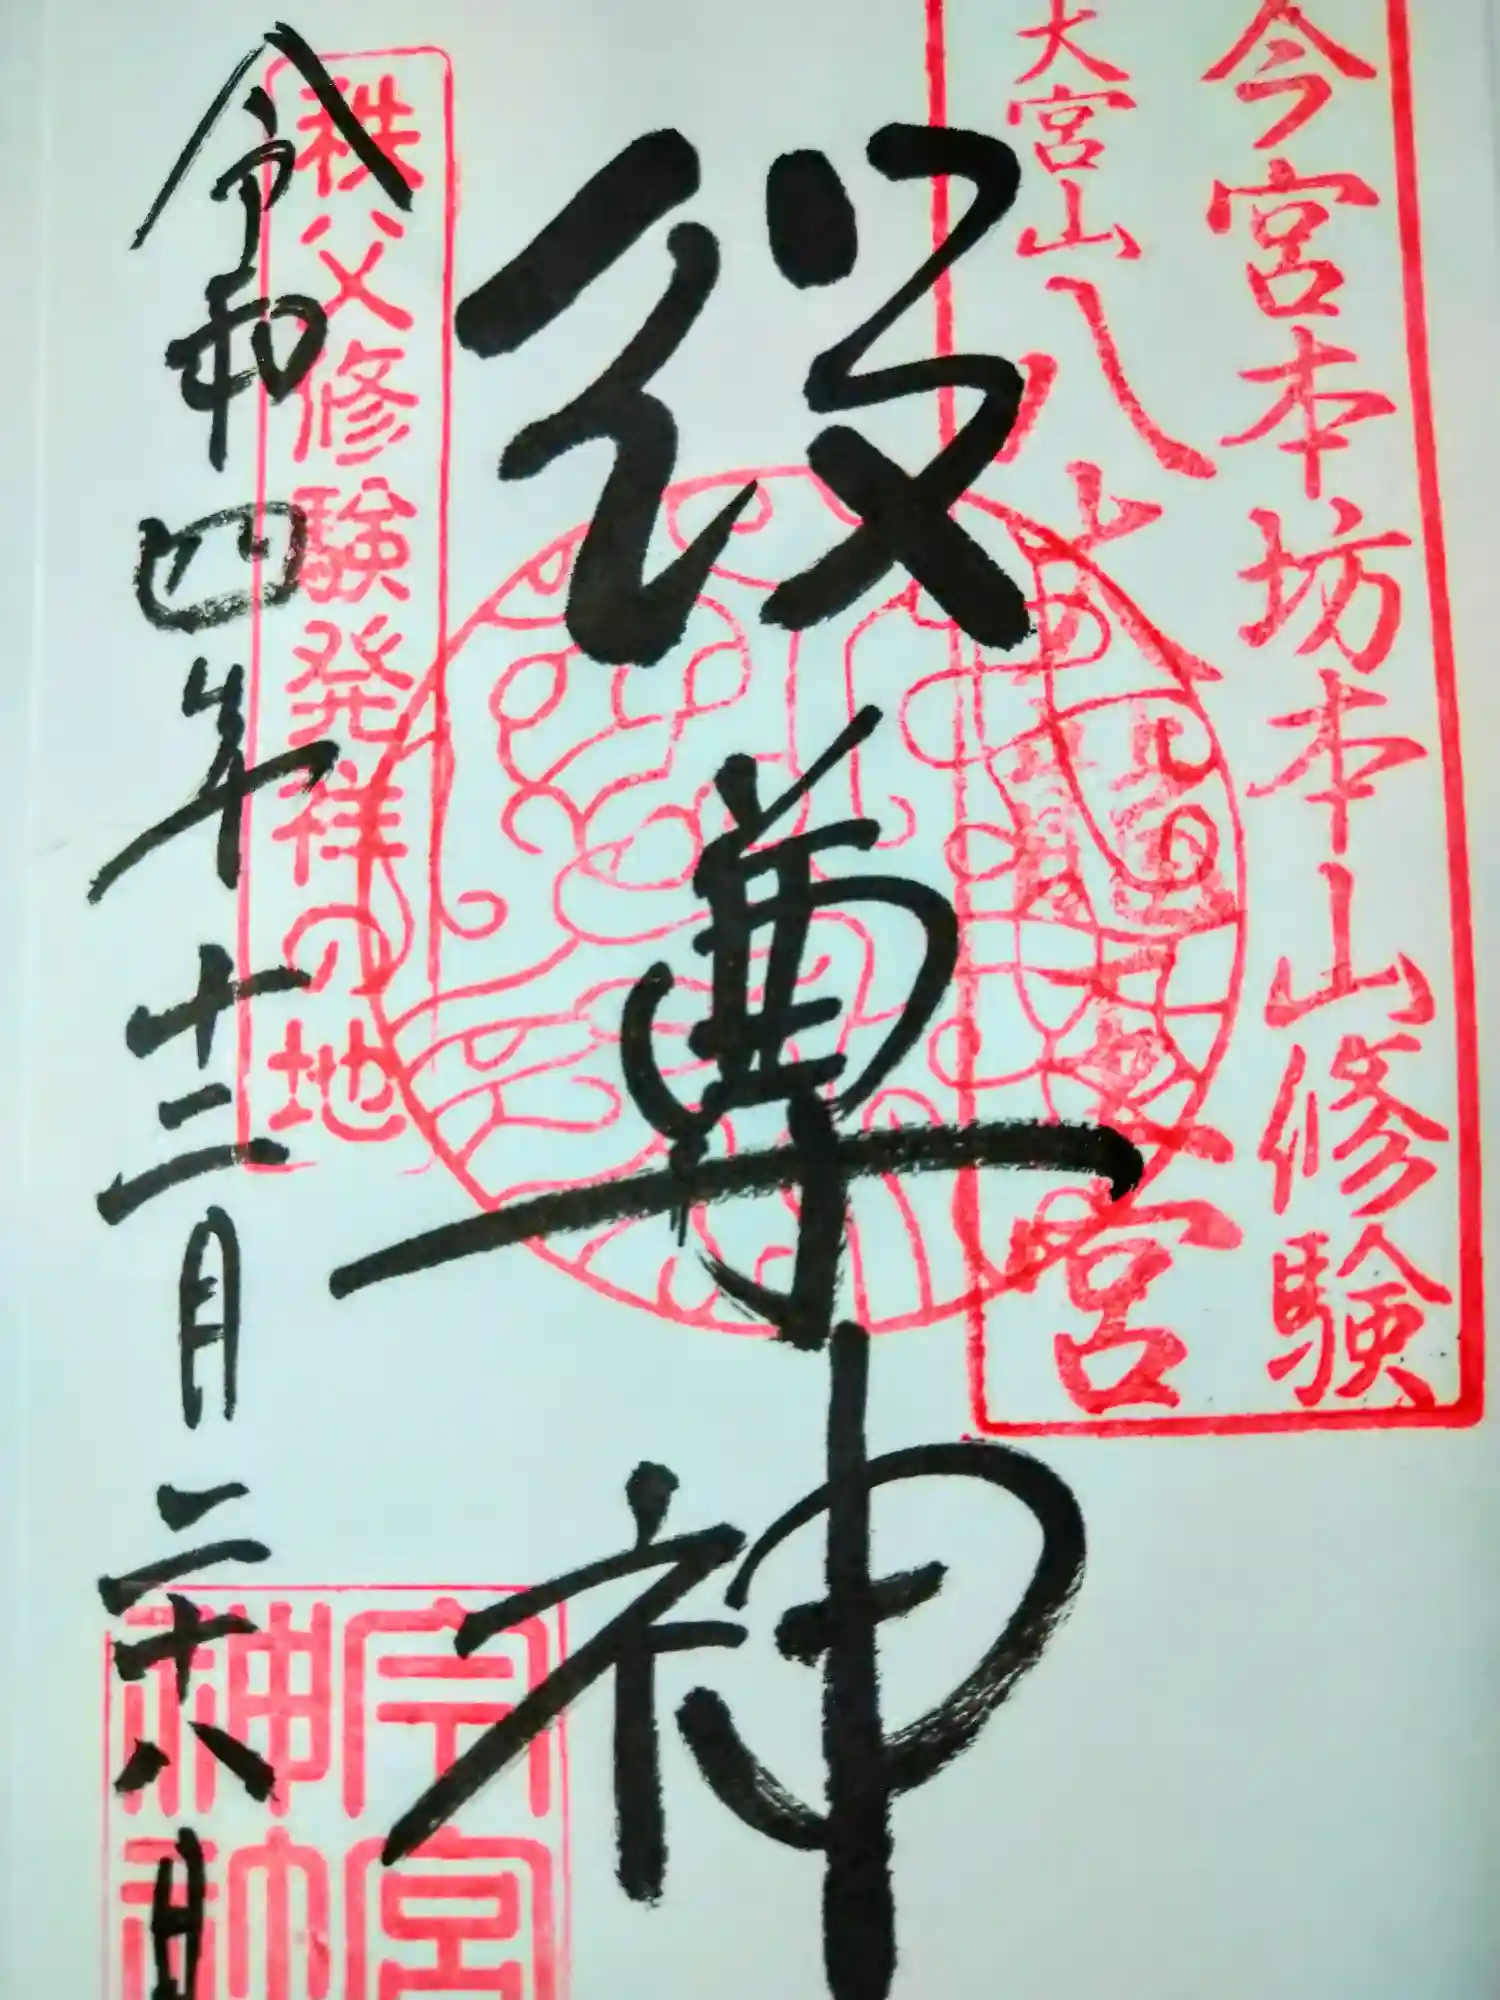 今宮本坊本山修験
大宮山八大宮
役尊神
秩父修験発祥の地
令和四年十二月二十八日